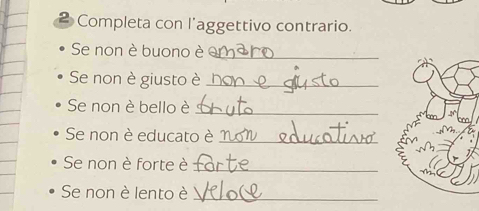 2 Completa con l'aggettivo contrario.
• Se non è buono è amaro
• Se non è giusto è non e giusto
• Se non è bello è bruto
• Se non è educato è non educativo
• Se non è forte è forte
• Se non è lento è veloce